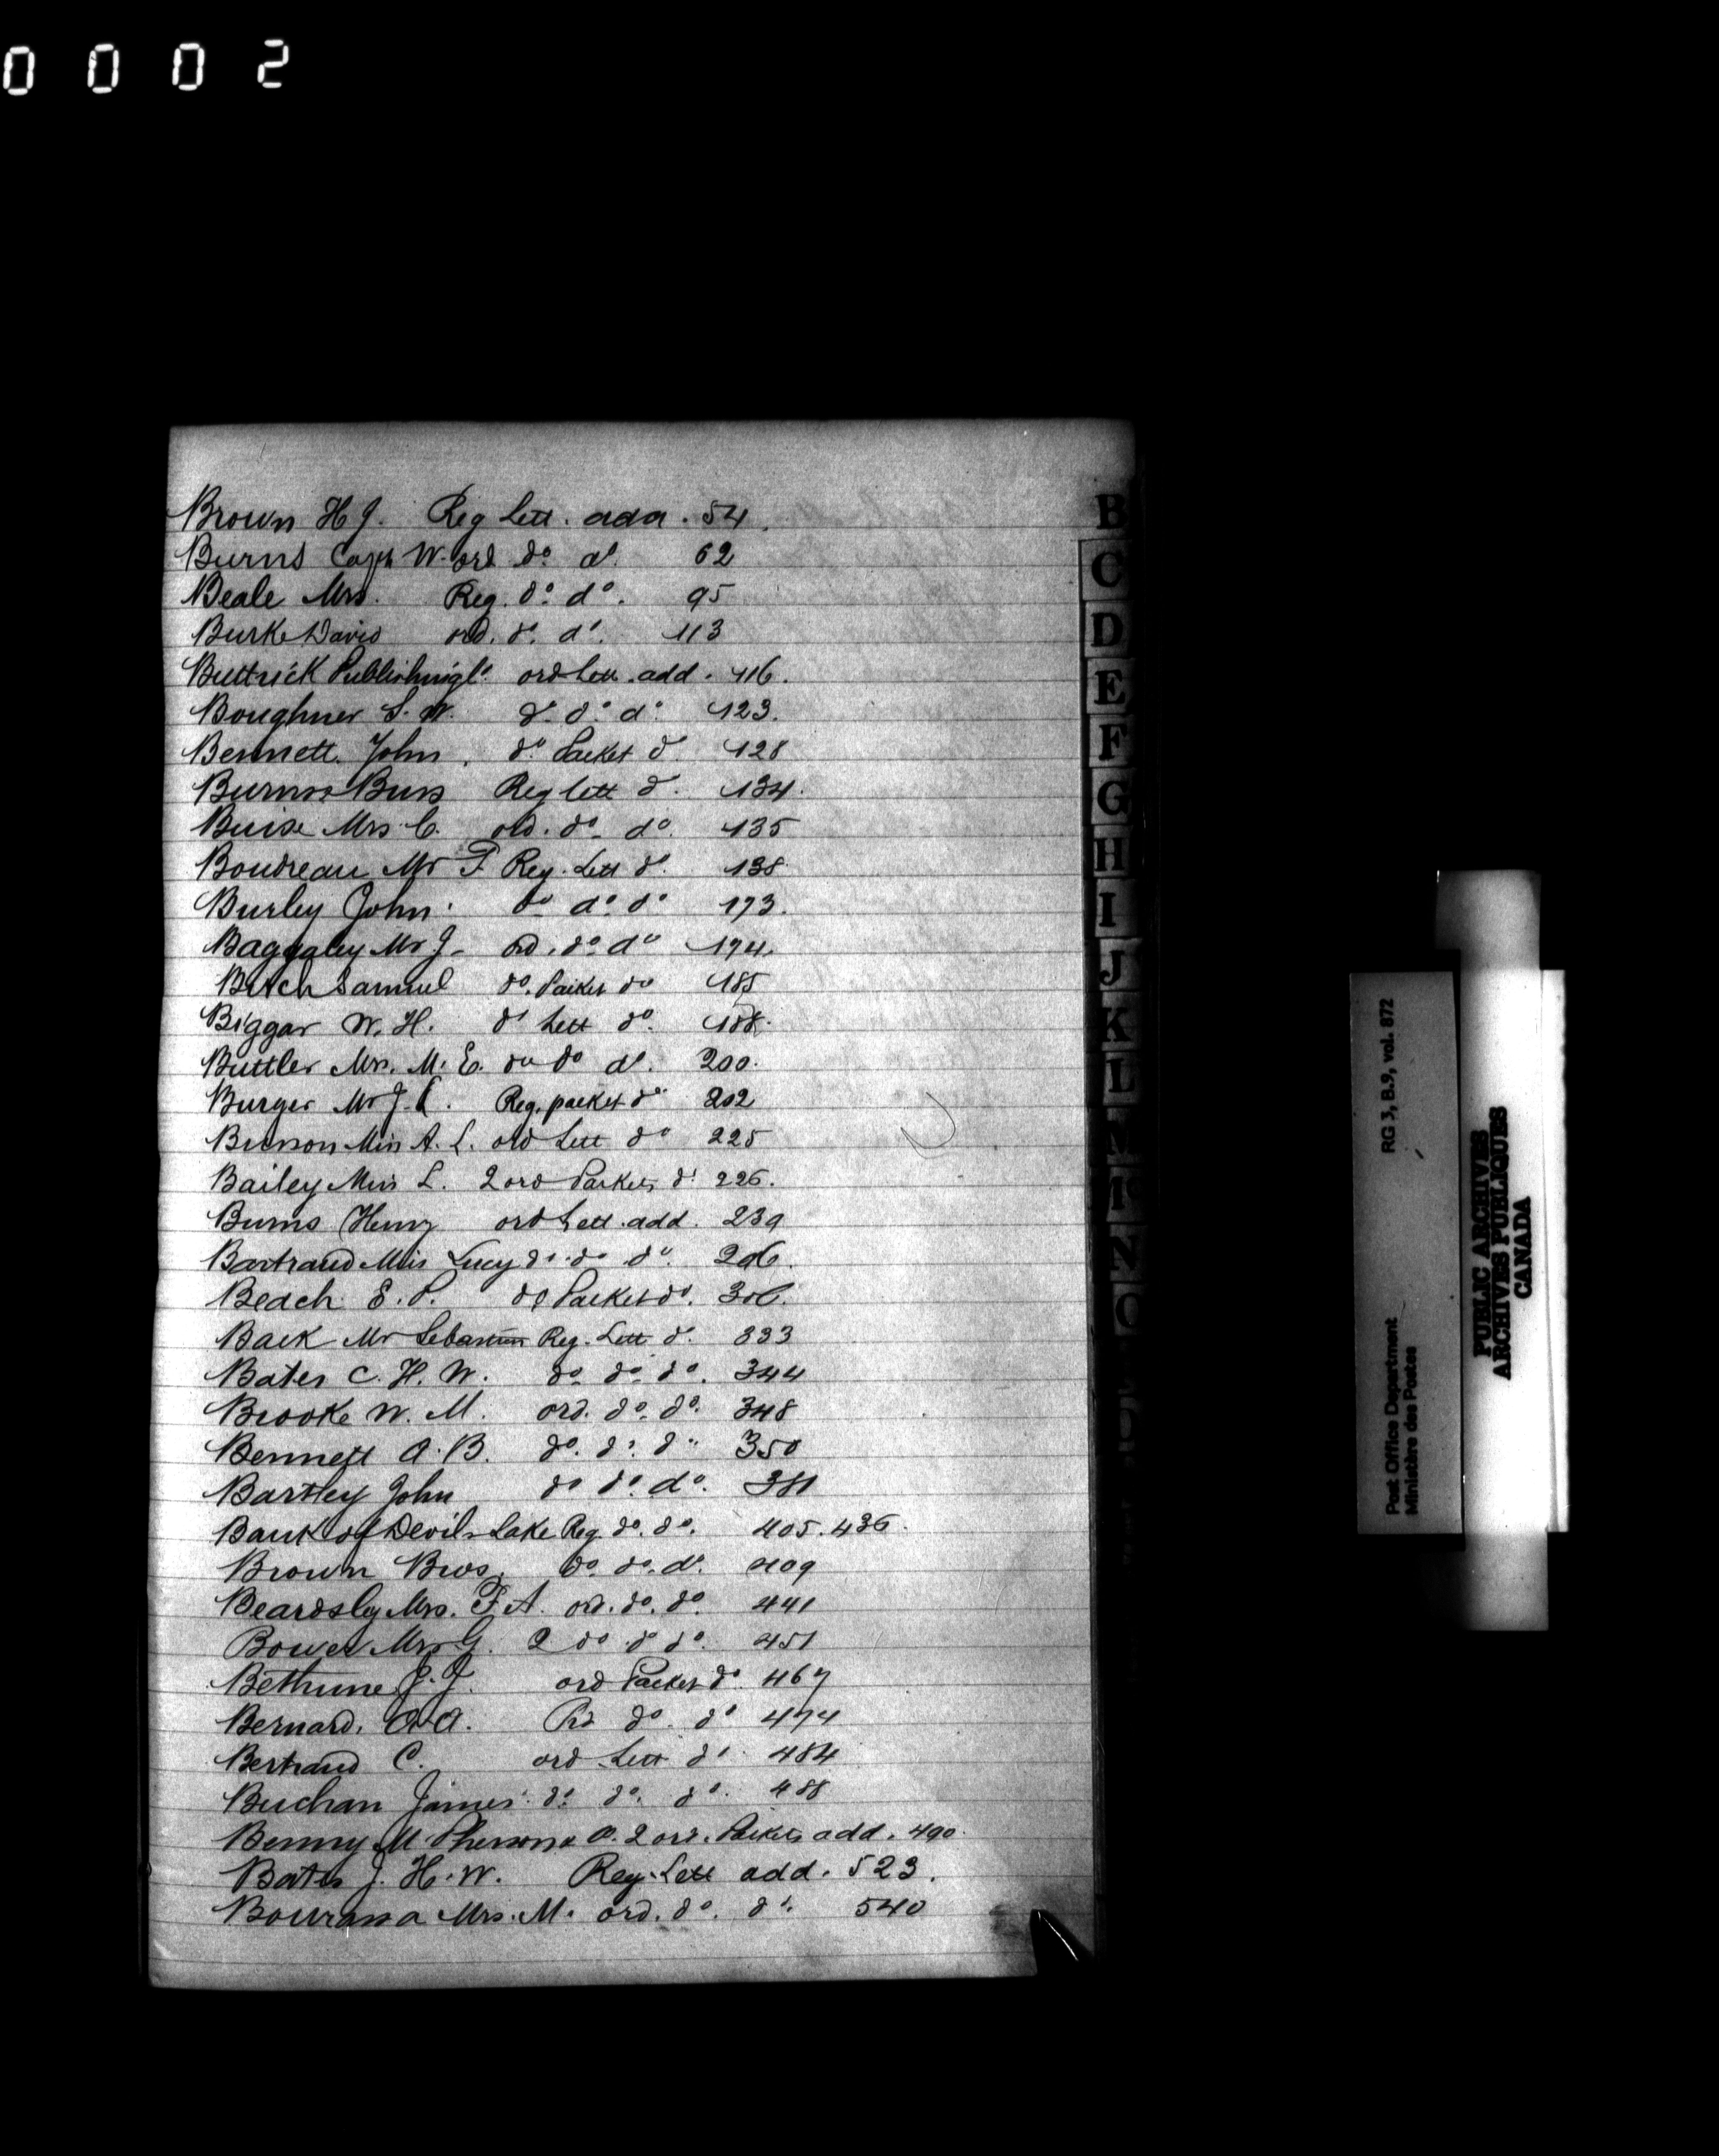 0 0 0 2
Brown H J. Reg Lett. add. 54.
Burns Capt W. ord do. do. 62
Beale Mrs. Reg. do. do. 95
Burke David ord. do. do. 113
Buttrick Publishing Co. ord Lett. add. 116.
Boughner S. W. do. do. do. 123.
Bennett John. do. Packet do. 128
Burns Reg lett do. 134.
Mrs. C. ord. do. do. 135
Boudreau Mr F Reg. Lett do. 138
Burley John. do do. do 173.
Baggaley Mr J. ord. do. do 174.
Samuel do. Packet do 185
Biggar W. H. do Lett do. 188.
Buttler Mrs. M. E. do do do. 200.
Burger Mr J. Reg. packet do 202
Miss A. L. ord Lett do 225
Bailey Miss L. 2 ord Packets do 226.
Burns Henry ord Lett. add. 239
Bartrand Miss Lucy do. do do. 206.
Beach E. P. do Packet do. 306.
Back Mr Sebastian Reg. Lett do. 333
Bates C. H. W. do. do. do. 344
Brooke W. M. ord. do. do. 348
Bennett A. B. do. do. do. 350
Bartley John do do. do. 381
Bank of Devils Lake Reg. do. do. 405. 436.
Brown Bros. do. do. do. 409
Beardsley Mrs. F. A. ord. do. do. 441
Bower Mrs G. 2 do. do do. 451
Bethune J. J. ord Packet do. 467
Bernard, A. A. Ord do. do 474
Bertrand C. ord Lett do. 484
Buchan James. do. do. do. 488
Benny McPherson & Co. 2 ord. Packets add. 490.
Bates J. H. W. Reg. Lett add. 523.
Bourassa Mrs. M. ord. do. do. 540
B
C
D
E
F
G
H
I
J
K
L
M
N
O
RG 3, B.9, vol. 872
Post Office Department
Ministère des Postes
PUBLIC ARCHIVES
ARCHIVES PUBLIQUES
CANADA